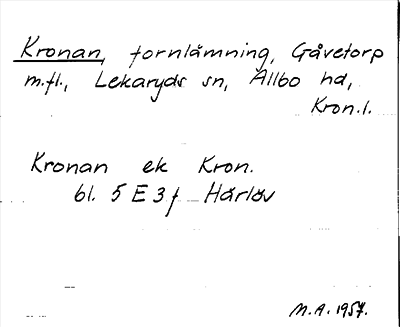 Kronan, fornlämning, Gåvetorp
m.fl., Lekaryds sn, Allbo hd,
Kron.l.
Kronan ek Kron.
bl. 5 E 3 f Härlöv
M.A. 1957.